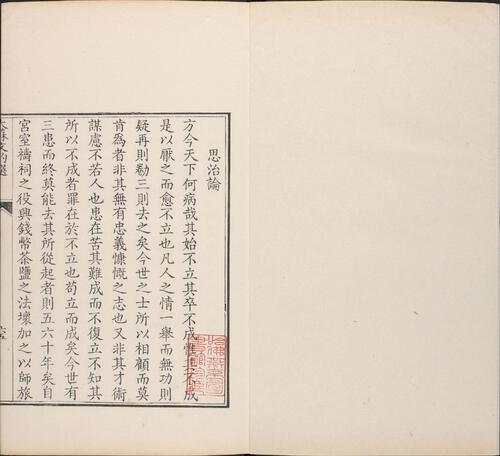 思治論
方今天下何病哉其始不立其卒不成惟其不成
是以厭之而愈不立也凡人之情一舉而無功則
疑再則勌三則去之矣今世之士所以相顧而莫
肯爲者非其無有忠義慷慨之志也又非其才術
謀慮不若人也患在苦其難成而不復立不知其
所以不成者罪在於不立也苟立而成矣今世有
三患而終莫能去其所從起者則五六十年矣自
宮室禱祠之役興錢幣茶鹽之法壞加之以師旅